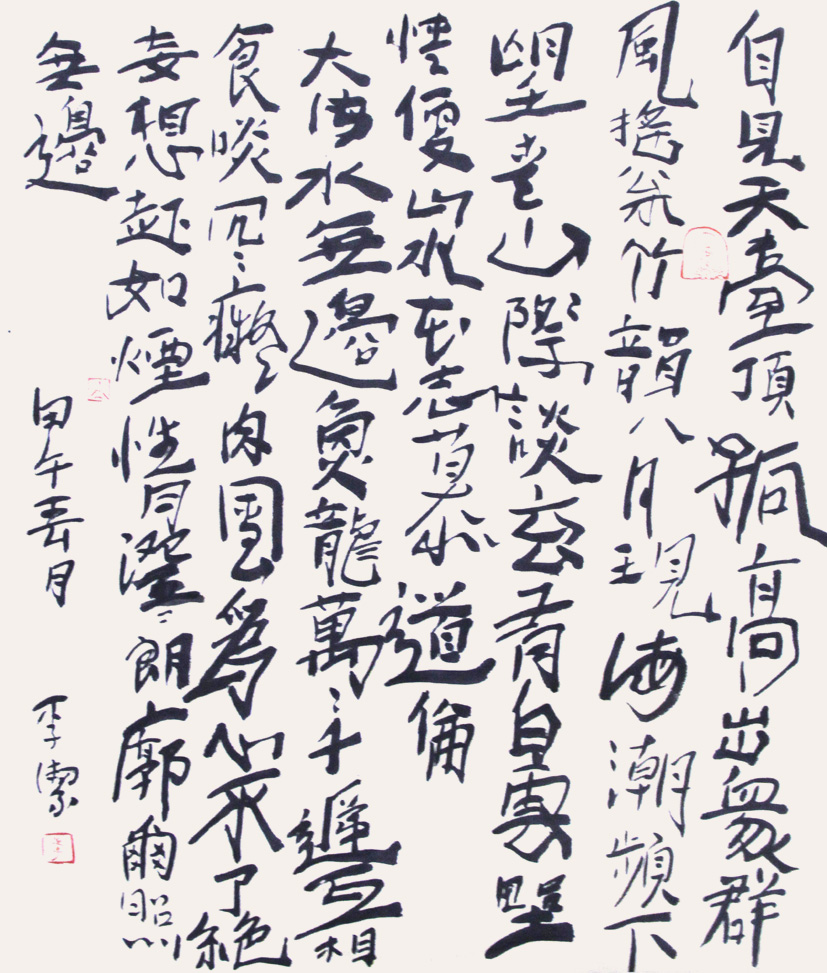 自見天臺頂孤高出衆群
風搖松竹韻八月現海潮頻下
望青山際談玄有白雲野
情便山水本志慕道倫
大海水無邊魚龍萬〻千遞互相
食啖冗〻癡〻肉團爲心不了絕
妄想起如煙性月澄〻朗廓爾照
無邊
甲午春月 李潔